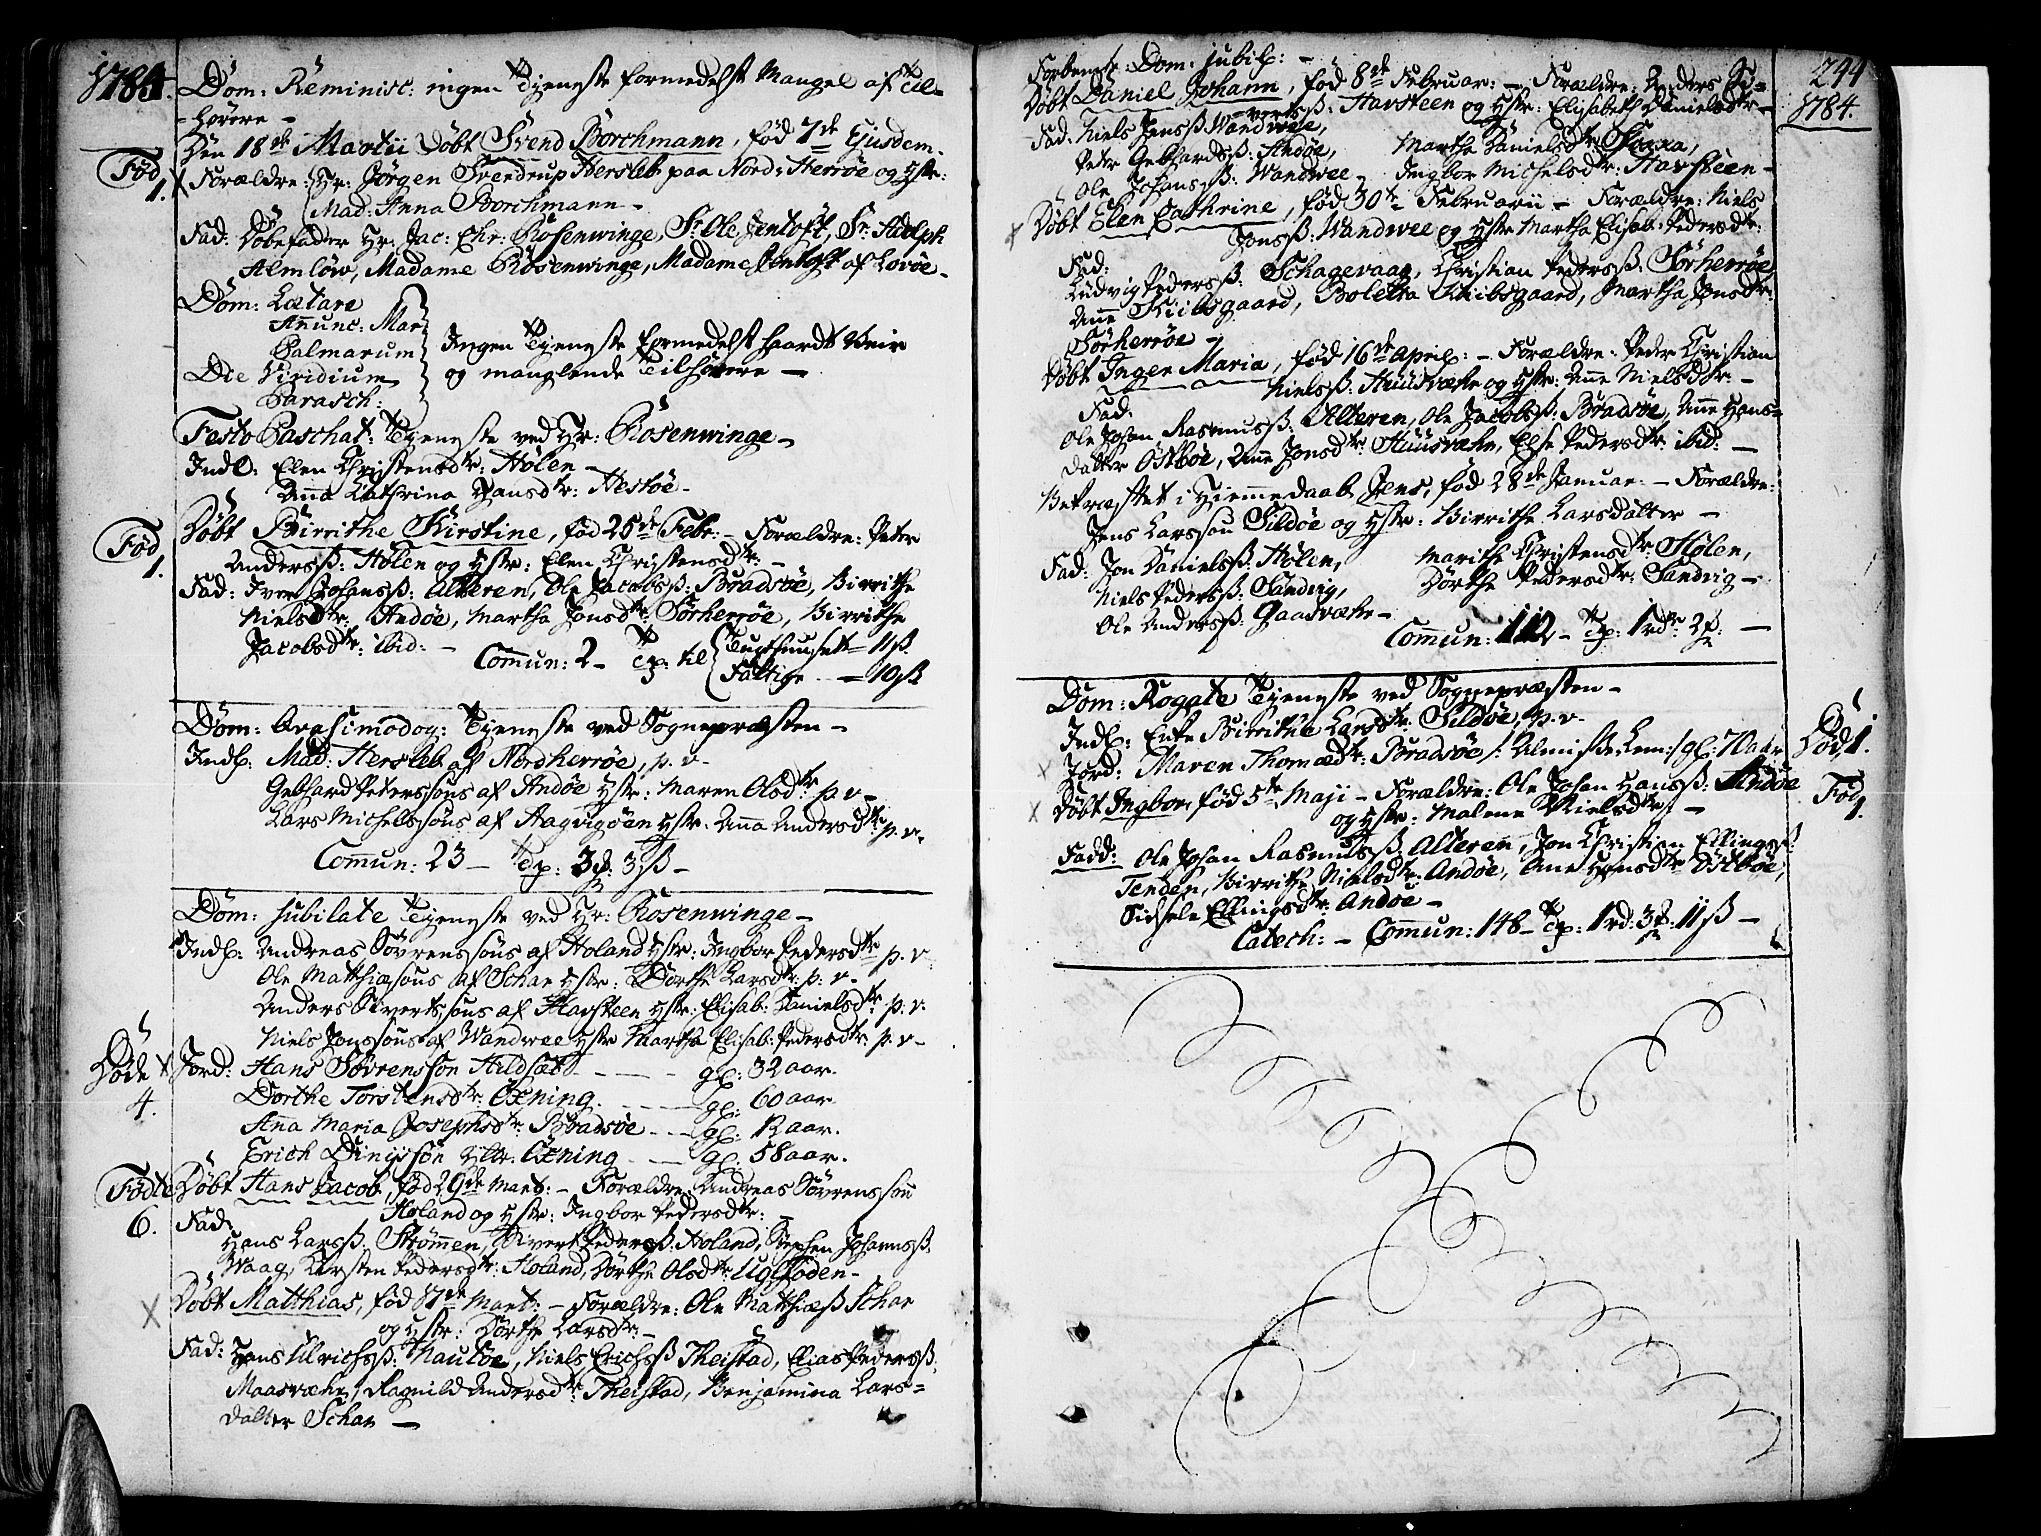 1784.
Dom: Reminisc: ingen Tjeneste formedelst Mangel af Til-
-hørere -
Den 18de Martii Døbt Svend Borchmann, fød 7de Ejusdem.
Fød
1.
Forældre: Hr: Jørgen Svendrup Hersleb paa Nord-Herrøe og Hstr:
Mad: Anna Borchmann -
Fad: Døbefader Hr: Jac: Chr: Rosenwinge, Sr. Ole Jentoft, Sr. Adolph
Almlöw, Madame Rosenwinge, Madame Jentoft af Lovöe -
Dom: Lætare
Anunc: Mar
Palmarum
Die Viridium
Parasch:
Ingen Tjeneste formedelst haardt Veir
og manglende Tilhørere -
Festo Paschat: Tjeneste ved Hr: Rosenwinge -
Indl: Elen Christensdtr: Holen -
Anna Cathrina Hansdtr: Hestöe -
Fød
1.
Døbt Birrithe Kirstine, fød 25de Febr: - Forældre: Peter
Anderss: Holen og Hstr: Elen Christensdtr: -
Fad: Iver Johanss: Alteren, Ole Jacobss: Bradsöe, Birrithe
Nielsdtr: Andöe, Martha Jonsdtr: Sörherröe, Birrithe
Jacobsdtr: ibid: -
Comun: 2 - Tp: til Tugthuuset - 11ß.
Fattige - 10ß
Dom: Qvasimodog: Tjeneste ved Sognepræsten -
Indl: Mad: Hersleb af Nordherröe, p. v.
Gebhard Peterssøns af Andöe Hstr: Maren Olsdtr p. v -
Lars Michelssøns af Aagvigöen Hstr: Anna Andersdtr p. v.
Comun: 23 - Tp: 3 3ß -
Dom: Jubilate Tjeneste ved Hr: Rosenwinge -
Indl: Andreas Sövrenssøns af Holand Hstr: Ingbor Pedersdtr p. v.
Ole Matthiæsøns af Schar Hstr: Dorthe Larsdtr: p. v -
Anders Sivertssøns af Havsteen Hstr: Elisab: Danielsdtr p. v:
Niels Jonssøns af Wandwee Hstr Martha Elisab: Pedersdtr: p. v -
Døde
4.
Jord: Hans Sövrenssøn Hildsæt - gl: 32 aar.
Dorthe Torstensdtr: Öxning - gl: 60 aar.
Ana Maria Josephsdtr: Bradsöe - gl: 12 aar.
Erich - Öxning - gl: 58 aar.
Fødte
6.
Døbt Hans Jacob, fød 29de Mart: - Forældre: Andreas Sövrenssøn
Holand og Hstr: Ingbor Pedersdtr: -
Fad:
Hans Larss: Strömmen, Sivert Pederss: Holand, Stephen Johanss:
Waag, Kirsten Pedersdtr: Holand, Dorthe Olsdtr:
Døbt Matthias, fød Mart: - Forældre: Ole Matthiæss Schar
og Hstr: Dorthe Larsdtr: -
Fad: Hans Ulrichss: Nautöe, Niels Erichss Theistad, Elias Pederss:
Maasværhr, Ragnild Andersdtr: Theistad, Benjamina Lars-
datter Schar -
244
1784.
Dom: Jubil: -
Døbt Daniel Johann, fød 8de Februar: - Forældre: Anders Si-
vertss: Havsteen og Hstr: Elisabeth Danielsdtr -
Fad: Niels Jenss Wandwee, Martha Danielsdtr:
Peter Gebhardss: Andöe, Ingbor Michelsdtr: Havsteen -
Ole Johanss: Wandwee -
Døbt Elen Cathrine, fød 30te Februarii - Forældre: Niels
Jonss: Wandwee og Hstr Martha Elisab: Pedersdtr:
Fad:
Ludvig Pederss: Schagevaag, Christian Pederss: Sörherröe,
Anne Skiibsgaard, Boletta Skiibsgaard, Martha Jonsdtr:
Sörherröe -
Døbt Inger Maria, fød 16de April: - Forældre: Peder Christian
Nielss: Huusværhr og Hstr: Anne Nielsdtr: -
Fad:
Ole Johan Rasmuss: Alteren, Ole Jacobss: Bradsöe, Anne Hans-
datter Östböe, Anne Jonsdtr: Huusværhr, Else Pedersdtr: ibid: -
Bekræftet i Hiemmedaab Jens, fød 28de Januar: - Forældre:
Jens Larssøn Sildöe og Hstr: Birrithe Larsdatter -
Fad: Jon Danielss: Holen, Marithe Christensdtr: Holen,
Niels Pederss: Sandvig, Dorthe Pedersdtr: Sandvig -
Ole Anderss: Gaasværhr -
Comun: 112 - Tp: 1rdr: 2 -
Dom: Rogate Tjeneste ved Sognepræsten -
Indl: Enke Birrithe Larsdtr: Sildöe, p. v -
Død 1.
Jord: Maren Thomædtr: Bradsöe /: Almisse-Lem :/ gl: 70 aar
Fød
1.
Døbt Ingbor, fød 5te Maji - Forældre: Ole Johan Hanss: Andöe
og Hstr: Malene Nielsdtr: -
Fadd: Ole Johan Rasmuss: Alteren, Jon Christian Ellingss:
Tenden, Birrithe Nielsdtr: Andöe, Ane Hansdtr Östböe,
Sidsele Ellingsdtr: Andöe -
Catech: - Comun: 148 - Tp: 1rd: 3 11ß -